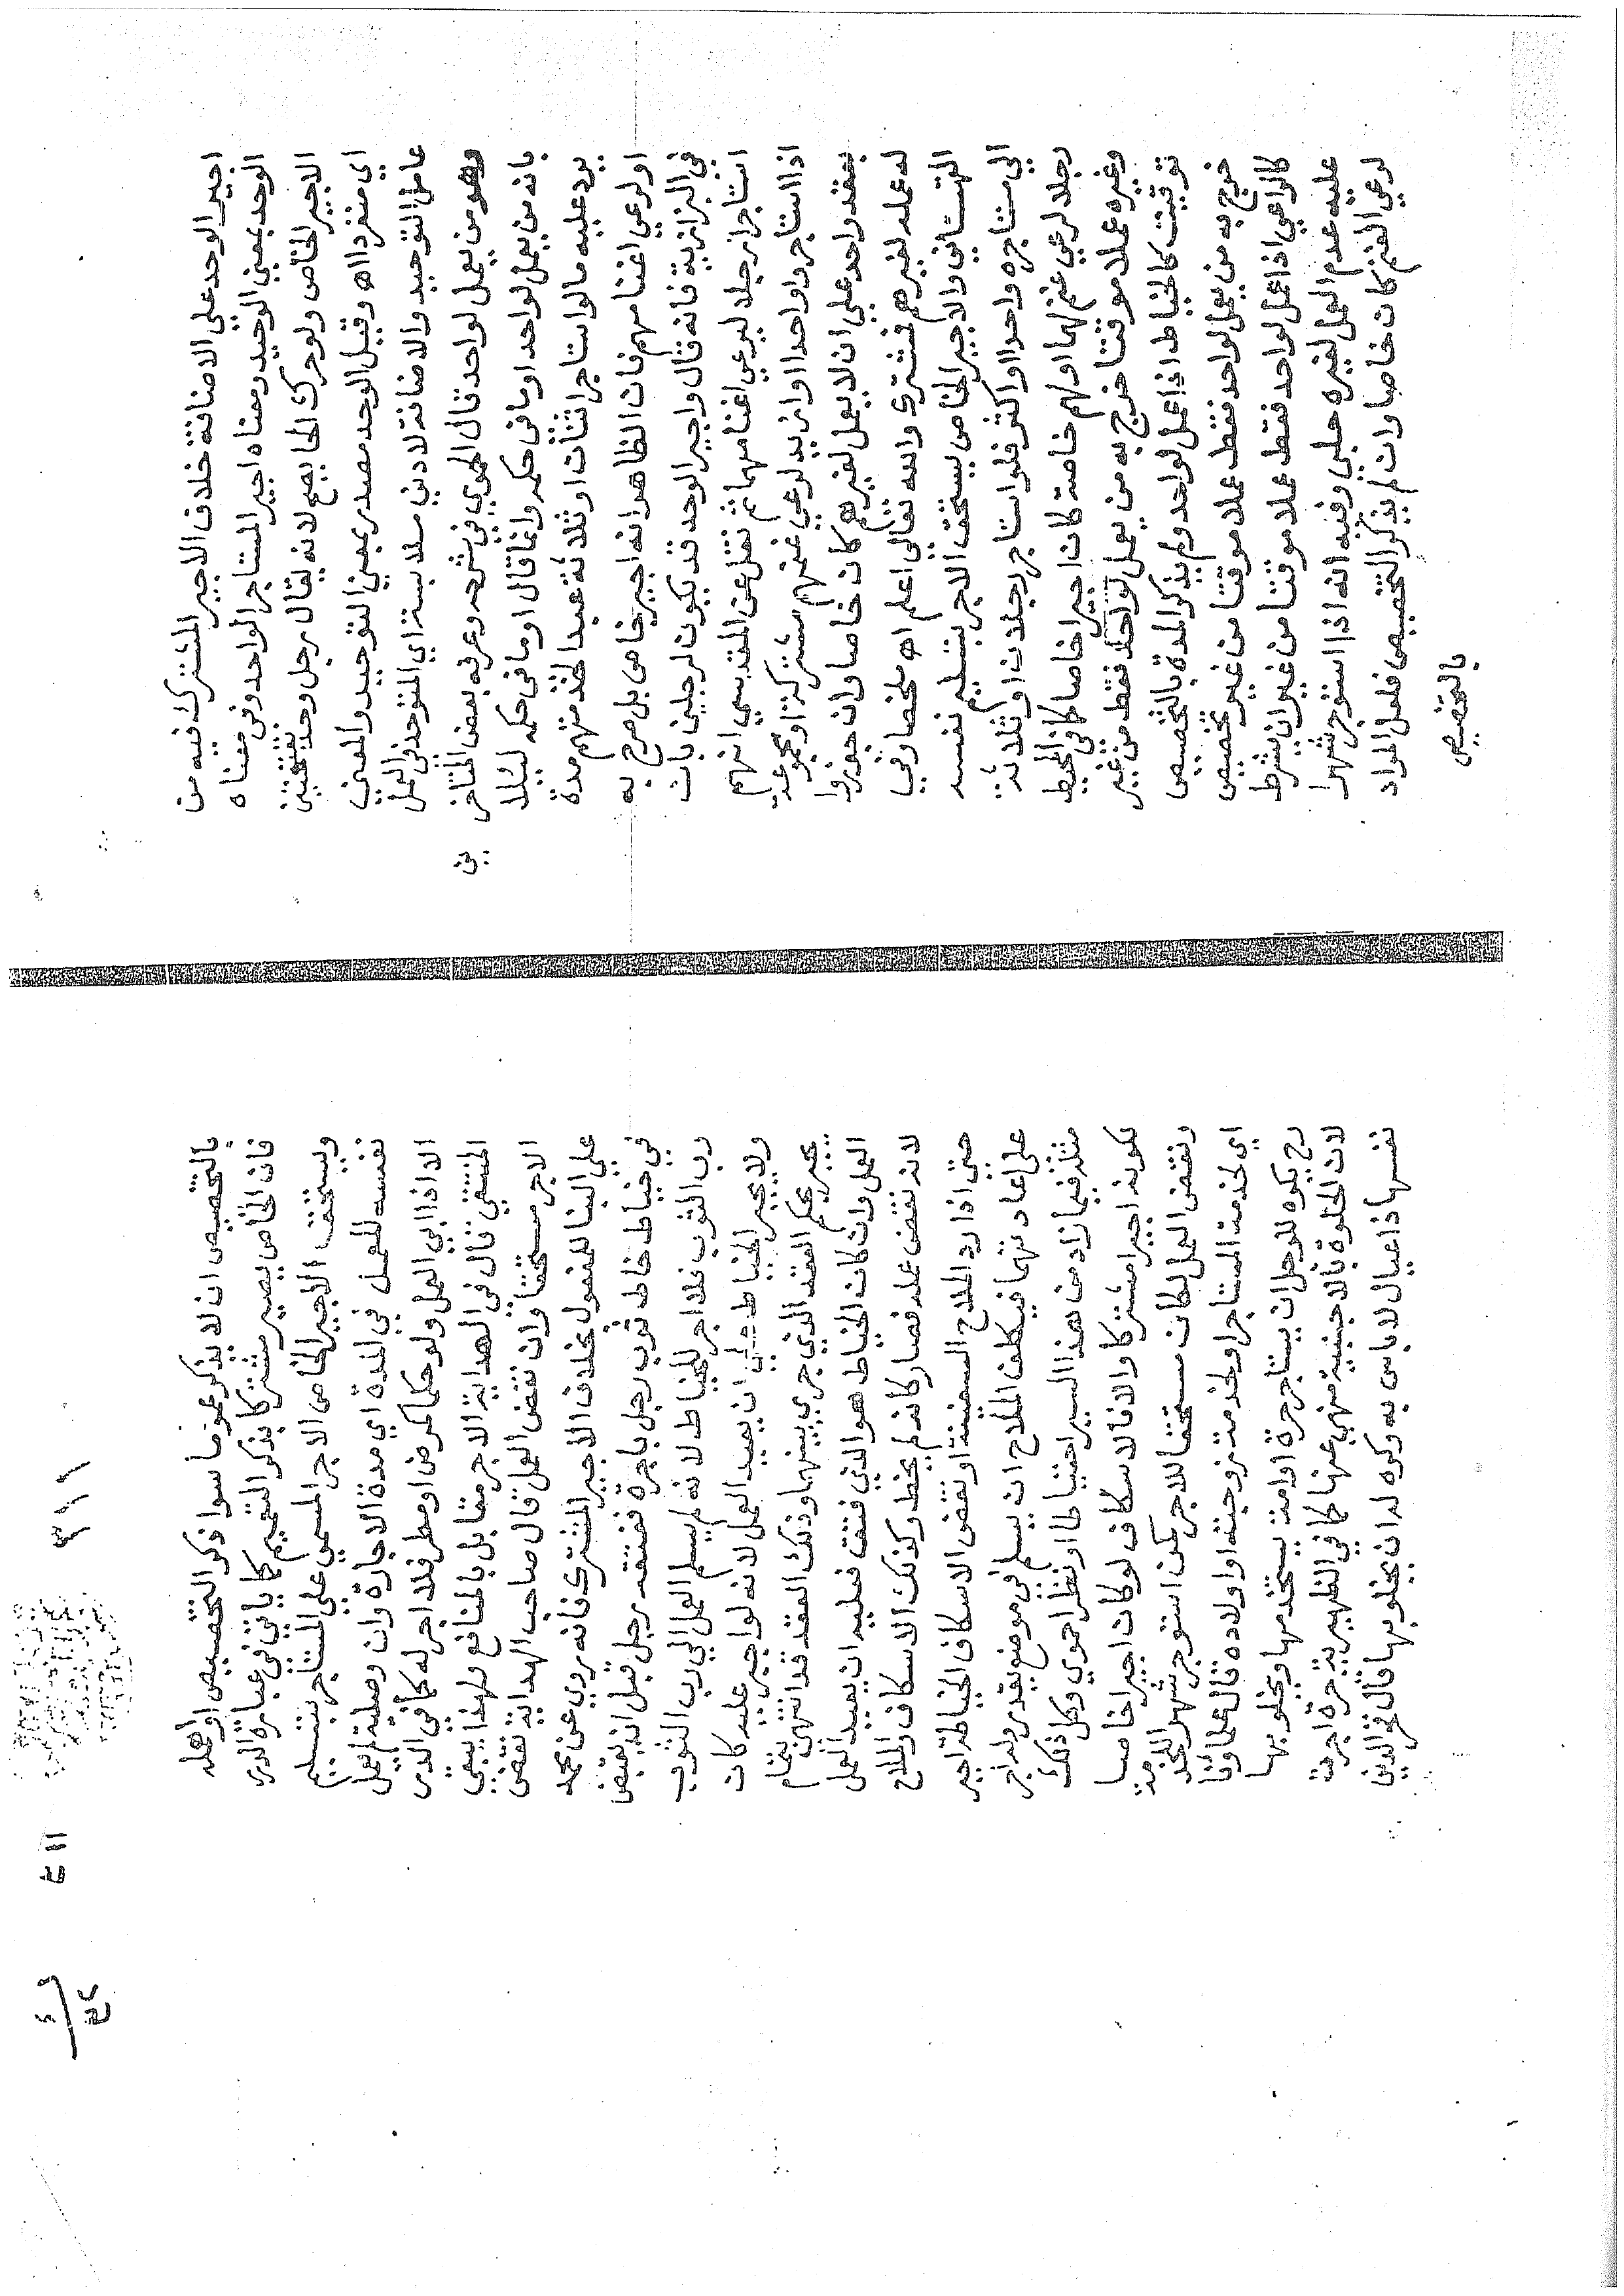 اجير الوحد على الاضافة خلاف الاجير المشترك فيه من
الوحد بمعنى الوحيد ومعناه اجير المستاجر الواحد وفي معناه
الاجير الخاص ولو حرك الحا يصح لانه يقال رجل وحد بفتحتين
اي منفرد اه وقيل الوحد مصدر بمعنى التوحيد والمعنى
عامل التوحيد والاضافة لادنى ملابسة اي المتوحد في العمل
وهو من يعمل لواحد قال الحموي في شرحه وعرفه بعض المتاخرين
بانه من يعمل لواحد او ما في حكمه وانما قال او ما في حكمه ليلا
يرد عليه ما لو استاجر اثنان او ثلاثة عبدا لخدمتهم مدة
او لرعي اغنامهم فان الظاهر انه اجير خاص بل صرح به
في البزازية فانه قال واجير الوحد قد يكون لرجلين بان
استاجرا رجلا ليرعى اغنامهما ثم نقل عن المقدسي انهم
اذا استاجروا واحدا او ازيد لرعي غنمهم مشتركة او مجموعة
بعقد واحد على ان لا يعمل لغيرهم كان خاصا وان جوزوا
له عمله لغيرهم فمشترك والله تعالى اعلم اه ملخصا وفي
القهستاني والاجير الخاص يستحق الاجر بتسليم نفسه
الي مستاجره واحدا او اكثر فلو استاجر رجلان او ثلاثة
رجلا لرعي غنم لهما او لهم خاصة كان اجيرا خاصا كما في المحيط
وغيره عملا موقتا خرج به من يعمل لواحد فقط من غير
توقيت كالخياط اذا عمل لواحد ولم يذكر المدة بالتخصيص
خرج به من يعمل لواحد فقط عملا موقتا من غير تخصيص
كالراعي اذا عمل لواحد فقط عملا موقتا من غير ان يشرط
عليه عدم العمل لغيره حلبي وفيه انه اذا استوجر شهرا
لرعي الغنم كان خاصا وان لم يذكر التخصيص فلعل المراد
بالتخصيص
٤١١
٣١١
بالتخصيص ان لا يذكر عموما سوا ذكر التخصيص او اهمله
فان الخاص يصير مشتركا بذكر التعميم كما ياتي في عبارة الدرر
ويستحق الاجير الخاص الاجر المسمى على المستاجر بتسليم
نفسه للعمل في المدة اي مدة الاجارة وان وصلية لم يعمل
الا اذا ابى العمل ولو حكما كمرض او مطر فلا اجر له كما في الدر
المنتقى قال في الهداية الاجر مقابل بالمنافع ولهذا يبقى
الاجر مستحقا وان نقض العمل قال صاحب الهداية نقض
على البنا للمفعول بخلاف الاجير المشترك فانه روي عن محمد
في خياط خاط ثوب رجل باجرة ففتقه رجل قبل ان يقبض
رب الثوب فلا اجر للخياط لانه لم يسلم العمل الى رب الثوب
ولا يجبر الخياط على ان يعيد العمل لانه لو اجبر عليه كان
يجبر بحكم العقد الذي جرى بينهما وذلك العقد قد انتهى بتمام
العمل وان كان الخياط هو الذي فتق فعليه ان يعيد العمل
لانه نقض عمله فصار كانه لم يخط وكذلك الاسكاف والملاح
حتى اذا رد الملاح السفينة او نقض الاسكاف الخياطة اجبر
على اعادتهما فيكلف الملاح ان يسلم في موضع يقدر وله اجر
مثله فيما زاد من هذا السير احتياطا او نظرا حموي وكل ذلك
لكونه اجيرا مشتركا والا فالاسكاف لو كان اجيرا خاصا
ونقض العمل لكان مستحقا للاجر كمن استوجر شهرا للخدمة
اي لخدمة المستاجر او لخدمة زوجته او اولاده قال علماؤنا
رح يكره للرجل ان يستاجر حرة او امة يستخدمها ويخلو بها
لان الخلوة بالاجنبية منهي عنها كما في الظهيرية حرة اجرت
نفسها ذا عيال لا باس به وكره له ان يخلو بها قال فخر الدين